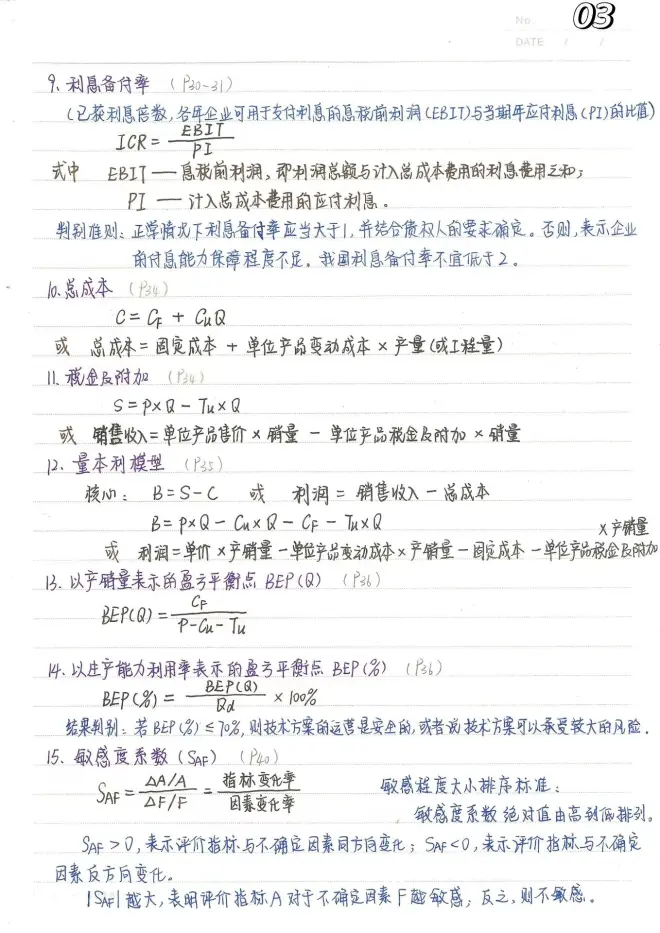 No. 03
DATE / /
9、利息备付率 (P30-31)
(已获利息倍数,各年企业可用于支付利息的息税前利润(EBIT)与当期年应付利息(PI)的比值)
ICR = EBIT / PI
式中 EBIT — 息税前利润,即利润总额与计入总成本费用的利息费用之和;
PI — 计入总成本费用的应付利息。
判别准则:正常情况下利息备付率应当大于1,并结合债权人的要求确定。否则,表示企业
的付息能力保障程度不足。我国利息备付率不宜低于2。
10、总成本 (P34)
C = CF + CuQ
或 总成本 = 固定成本 + 单位产品变动成本 × 产量(或工程量)
11、税金及附加 (P34)
S = P×Q - Tu×Q
或 销售收入 = 单位产品售价 × 销量 - 单位产品税金及附加 × 销量
12、量本利模型 (P35)
核心: B = S - C 或 利润 = 销售收入 - 总成本
B = P×Q - Cu×Q - CF - Tu×Q
或 利润 = 单价 × 产销量 - 单位产品变动成本 × 产销量 - 固定成本 - 单位产品税金及附加
×产销量
13、以产销量表示的盈亏平衡点 BEP(Q) (P36)
BEP(Q) = CF / P-Cu-Tu
14、以生产能力利用率表示的盈亏平衡点 BEP(%) (P36)
BEP(%) = BEP(Q) / Qd × 100%
结果判别:若BEP(%)≤70%,则技术方案的运营是安全的,或者说技术方案可以承受较大的风险.
15、敏感度系数(SAF) (P40)
SAF = ΔA/A / ΔF/F = 指标变化率 / 因素变化率
敏感程度大小排序标准:
敏感度系数绝对值由高到低排列。
SAF > 0,表示评价指标与不确定因素同方向变化;SAF<0,表示评价指标与不确定
因素反方向变化。
|SAF| 越大,表明评价指标A对于不确定因素F越敏感;反之,则不敏感。